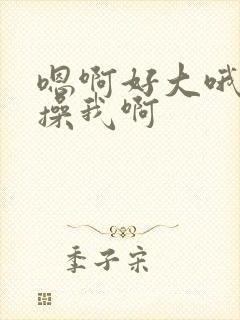 嗯啊好大哦
操我啊
季子宋